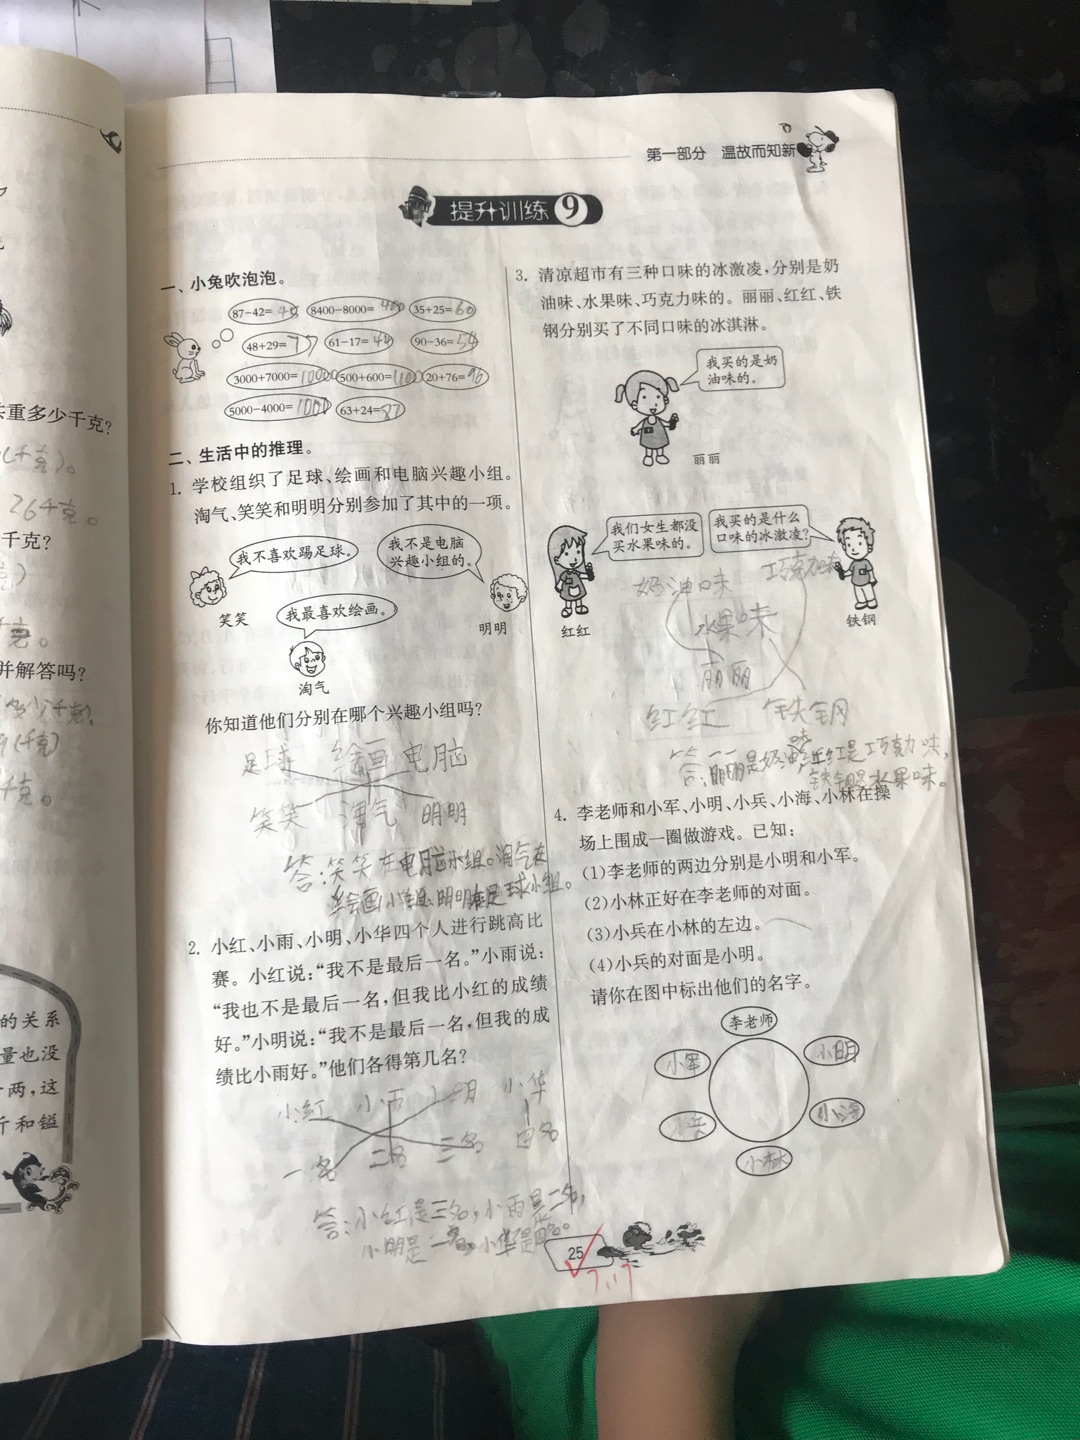 第一部分 温故而知新
提升训练 9
一、小兔吹泡泡。
87-42=45 8400-8000=400 35+25=60
48+29=77 61-17=44 90-36=54
3000+7000=10000 500+600=1100 20+76=96
5000-4000=1000 63+24=87
二、生活中的推理。
1. 学校组织了足球、绘画和电脑兴趣小组。
淘气、笑笑和明明分别参加了其中的一项。
我不喜欢踢足球。
我不是电脑
兴趣小组的。
笑笑
我最喜欢绘画。
明明
淘气
你知道他们分别在哪个兴趣小组吗?
足球 绘画 电脑
笑笑 淘气 明明
答:笑笑在电脑小组。淘气在
绘画小组。明明在足球小组。
2. 小红、小雨、小明、小华四个人进行跳高比
赛。小红说:“我不是最后一名。”小雨说:
“我也不是最后一名,但我比小红的成绩
好。”小明说:“我不是最后一名,但我的成
绩比小雨好。”他们各得第几名?
小红 小雨 小明 小华
一名 二名 三名 四名
答:小红是三名,小雨是二名,
小明是一名,小华是四名。
3. 清凉超市有三种口味的冰激凌,分别是奶
油味、水果味、巧克力味的。丽丽、红红、铁
钢分别买了不同口味的冰淇淋。
我买的是奶
油味的。
丽丽
我们女生都没
买水果味的。
我买的是什么
口味的冰激凌?
红红
铁钢
奶油味 巧克力味
水果味
丽丽
红红 铁钢
答:丽丽是奶油味,红红是巧克力味,
铁钢是水果味。
4. 李老师和小军、小明、小兵、小海、小林在操
场上围成一圈做游戏。已知:
(1)李老师的两边分别是小明和小军。
(2)小林正好在李老师的对面。
(3)小兵在小林的左边。
(4)小兵的对面是小明。
请你在图中标出他们的名字。
李老师
小军 小明
小兵 小海
小林
25
7.17
共重多少千克?
(千克)。
26千克。
千克?
千克。
并解答吗?
(千克)
千克。
的关系
量也没
两,这
斤和镒